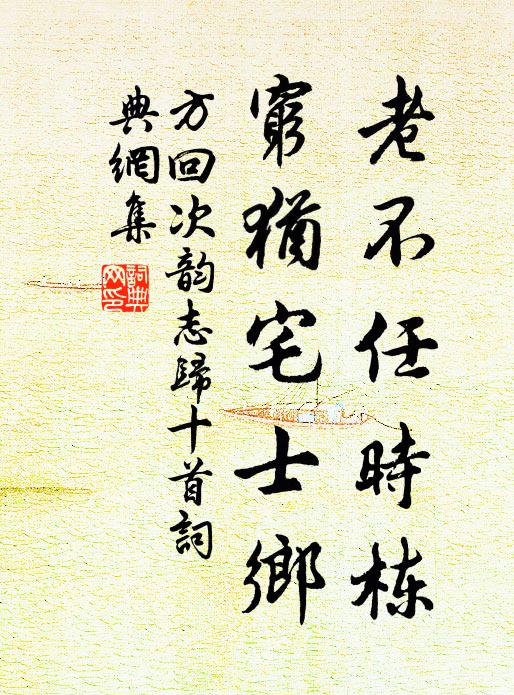 老不任時栋
窮猶宅士鄉
方回次韵志歸十首詞
典網集
詞典
网印